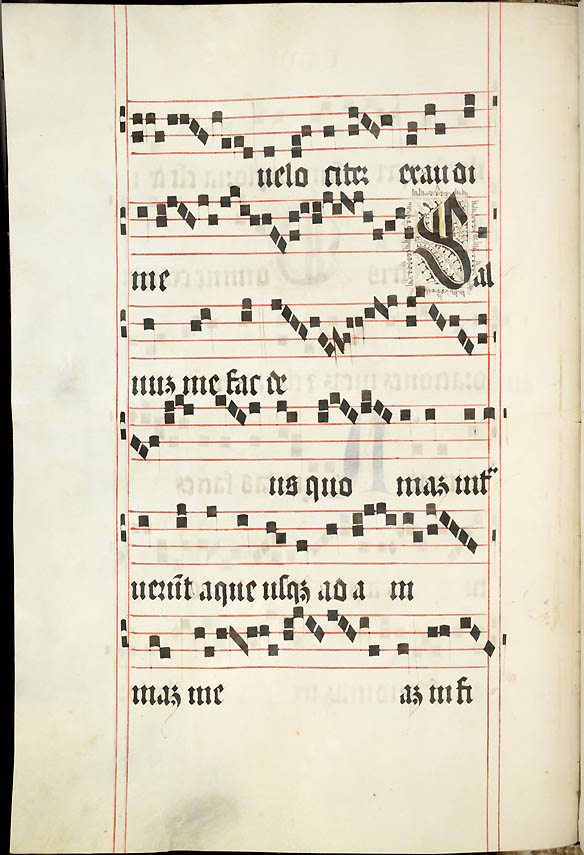 velo citer exaudi
me Sal
uuʒ me fac de
us quo maʒ intͬ
uerūt aque usqʒ ad a ni
maʒ me aʒ in fi